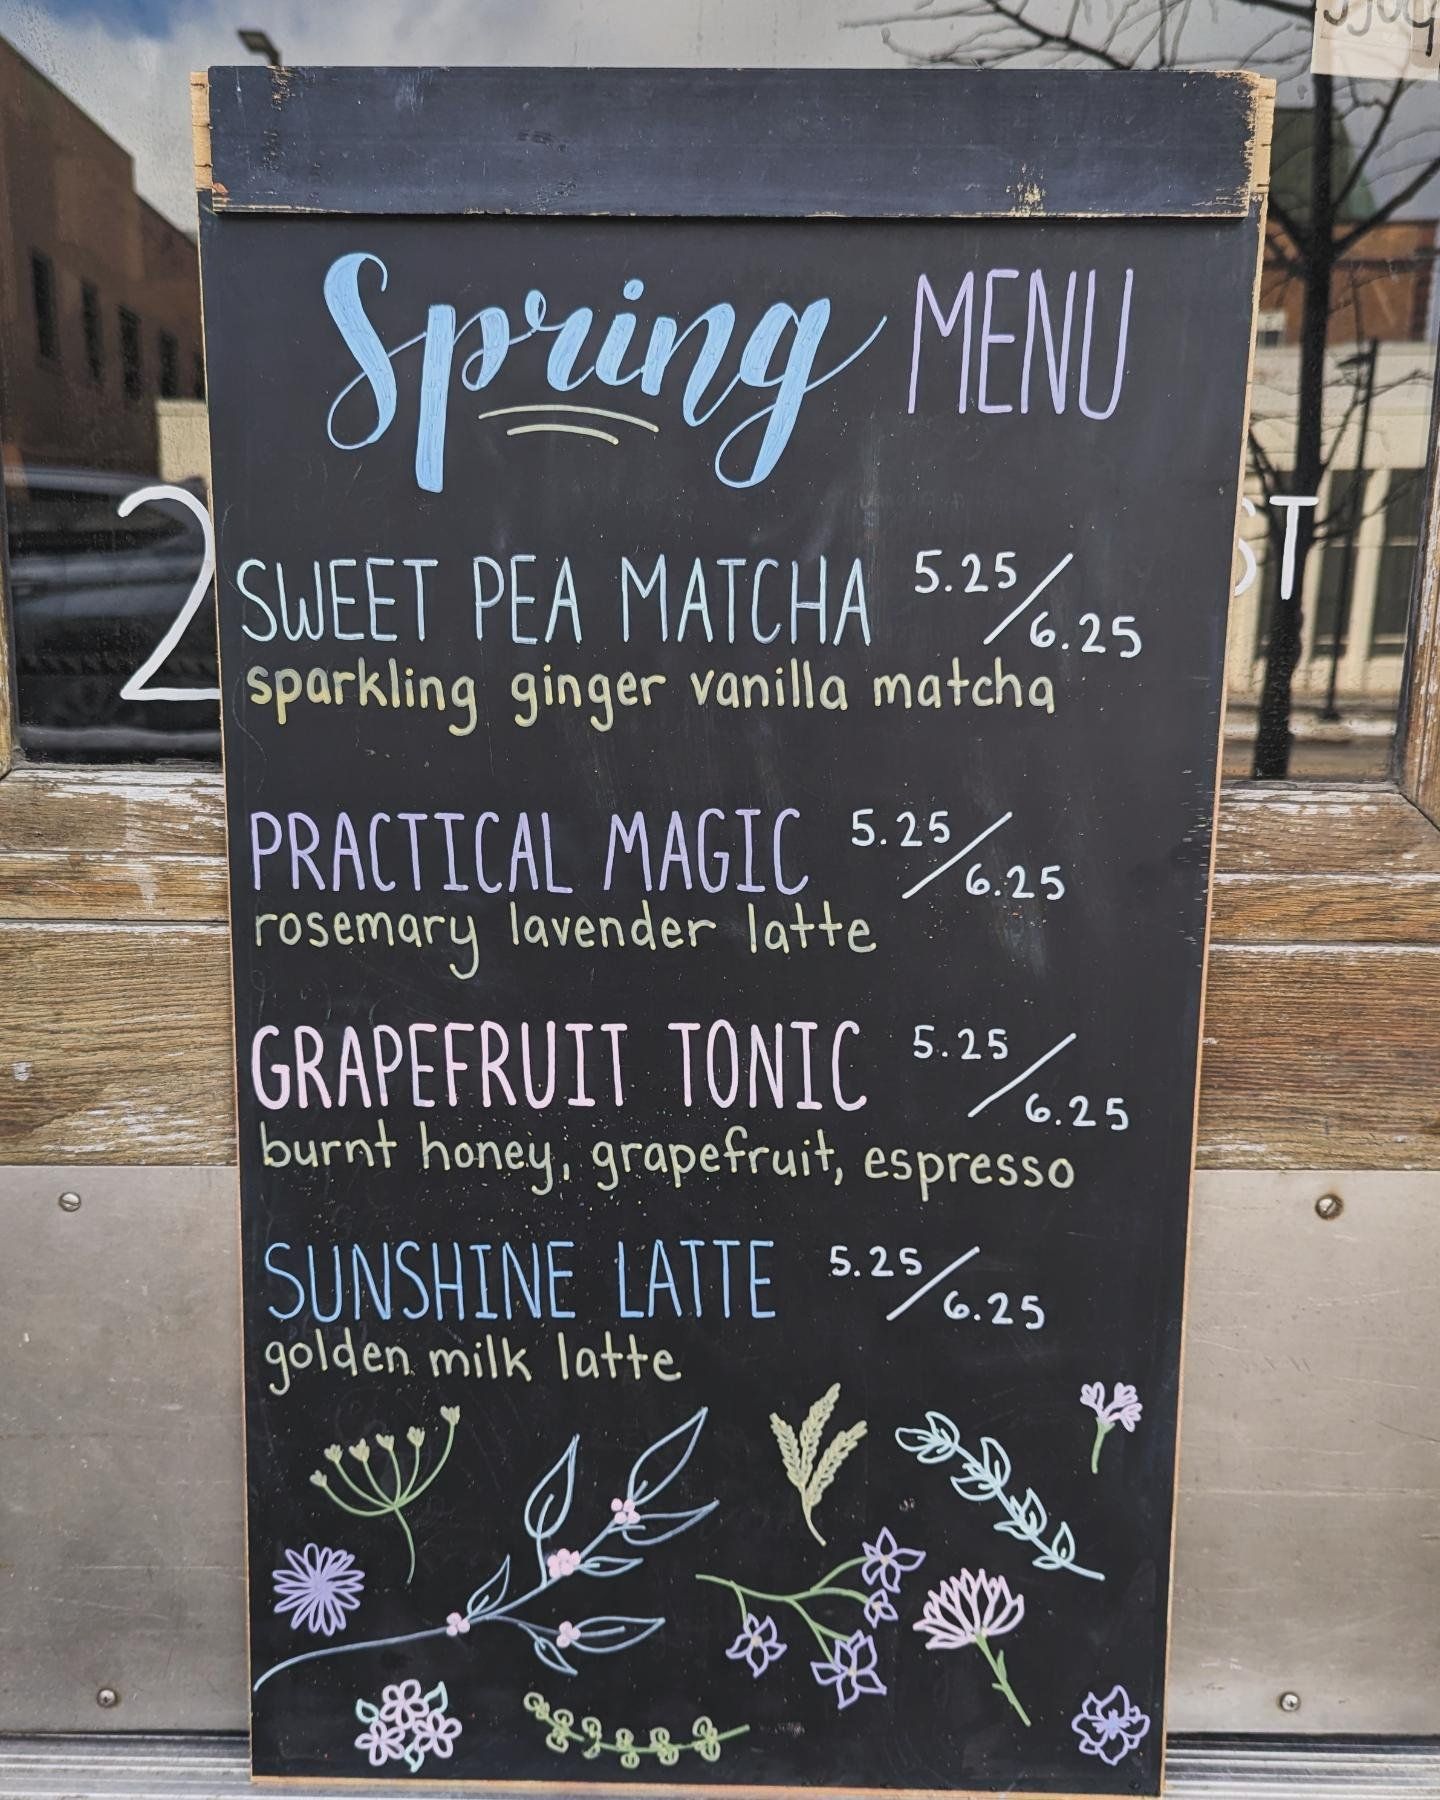 Spring MENU
SWEET PEA MATCHA 5.25/6.25
sparkling ginger vanilla matcha
PRACTICAL MAGIC 5.25/6.25
rosemary lavender latte
GRAPEFRUIT TONIC 5.25/6.25
burnt honey, grapefruit, espresso
SUNSHINE LATTE 5.25/6.25
golden milk latte
2
ST